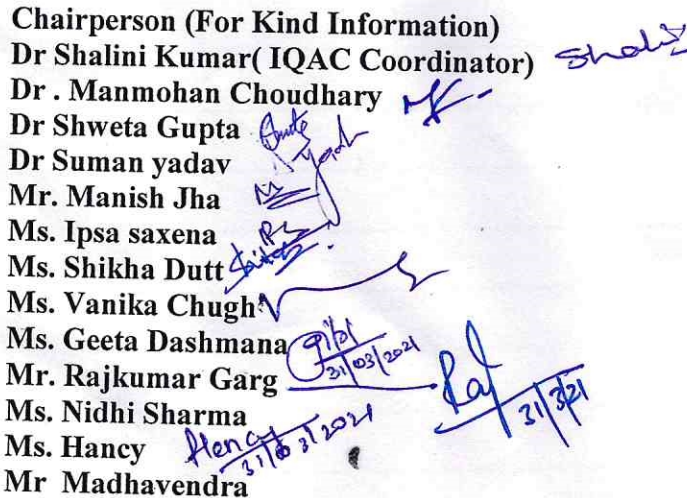 Chairperson (For Kind Information)
Dr Shalini Kumar( IQAC Coordinator)
Dr . Manmohan Choudhary
Dr Shweta Gupta
Dr Suman yadav
Mr. Manish Jha
Ms. Ipsa saxena
Ms. Shikha Dutt
Ms. Vanika Chugh
Ms. Geeta Dashmana 31/03/2021
Mr. Rajkumar Garg Raj 31/3/21
Ms. Nidhi Sharma
Ms. Hancy 31/03/2021
Mr Madhavendra